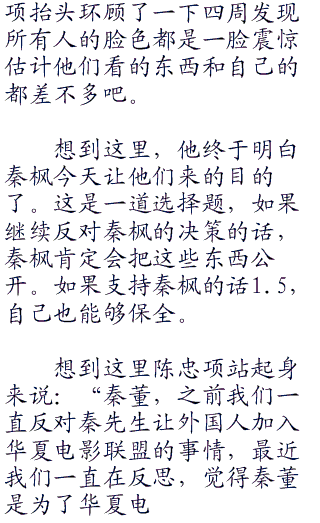 项抬头环顾了一下四周发现
所有人的脸色都是一脸震惊
估计他们看的东西和自己的
都差不多吧。
想到这里，他终于明白
秦枫今天让他们来的目的
了。这是一道选择题，如果
继续反对秦枫的决策的话，
秦枫肯定会把这些东西公
开。如果支持秦枫的话1.5，
自己也能够保全。
想到这里陈忠项站起身
来说：“秦董，之前我们一
直反对秦先生让外国人加入
华夏电影联盟的事情，最近
我们一直在反思，觉得秦董
是为了华夏电